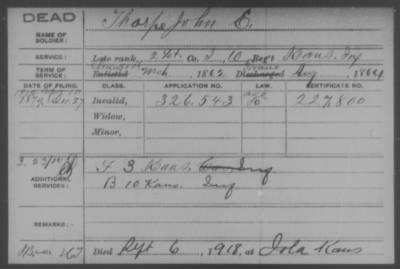 DEAD
NAME OF SOLDIER:
Thorpe John E.
SERVICE:
Late rank, 2 Lt. Co. I, 10 Reg't Kans. Inf
TERM OF SERVICE:
Enlisted Mch. 1862 Discharged Aug 1864
DATE OF FILING.
CLASS.
APPLICATION NO.
LAW.
CERTIFICATE NO.
Dec. 27
Invalid,
326.543
227.800
Widow,
Minor,
ADDITIONAL SERVICES:
F 3 Kans. Inf
B 10 Kans. Inf
REMARKS:
Died Sept 6, 1918, at Iola Kans